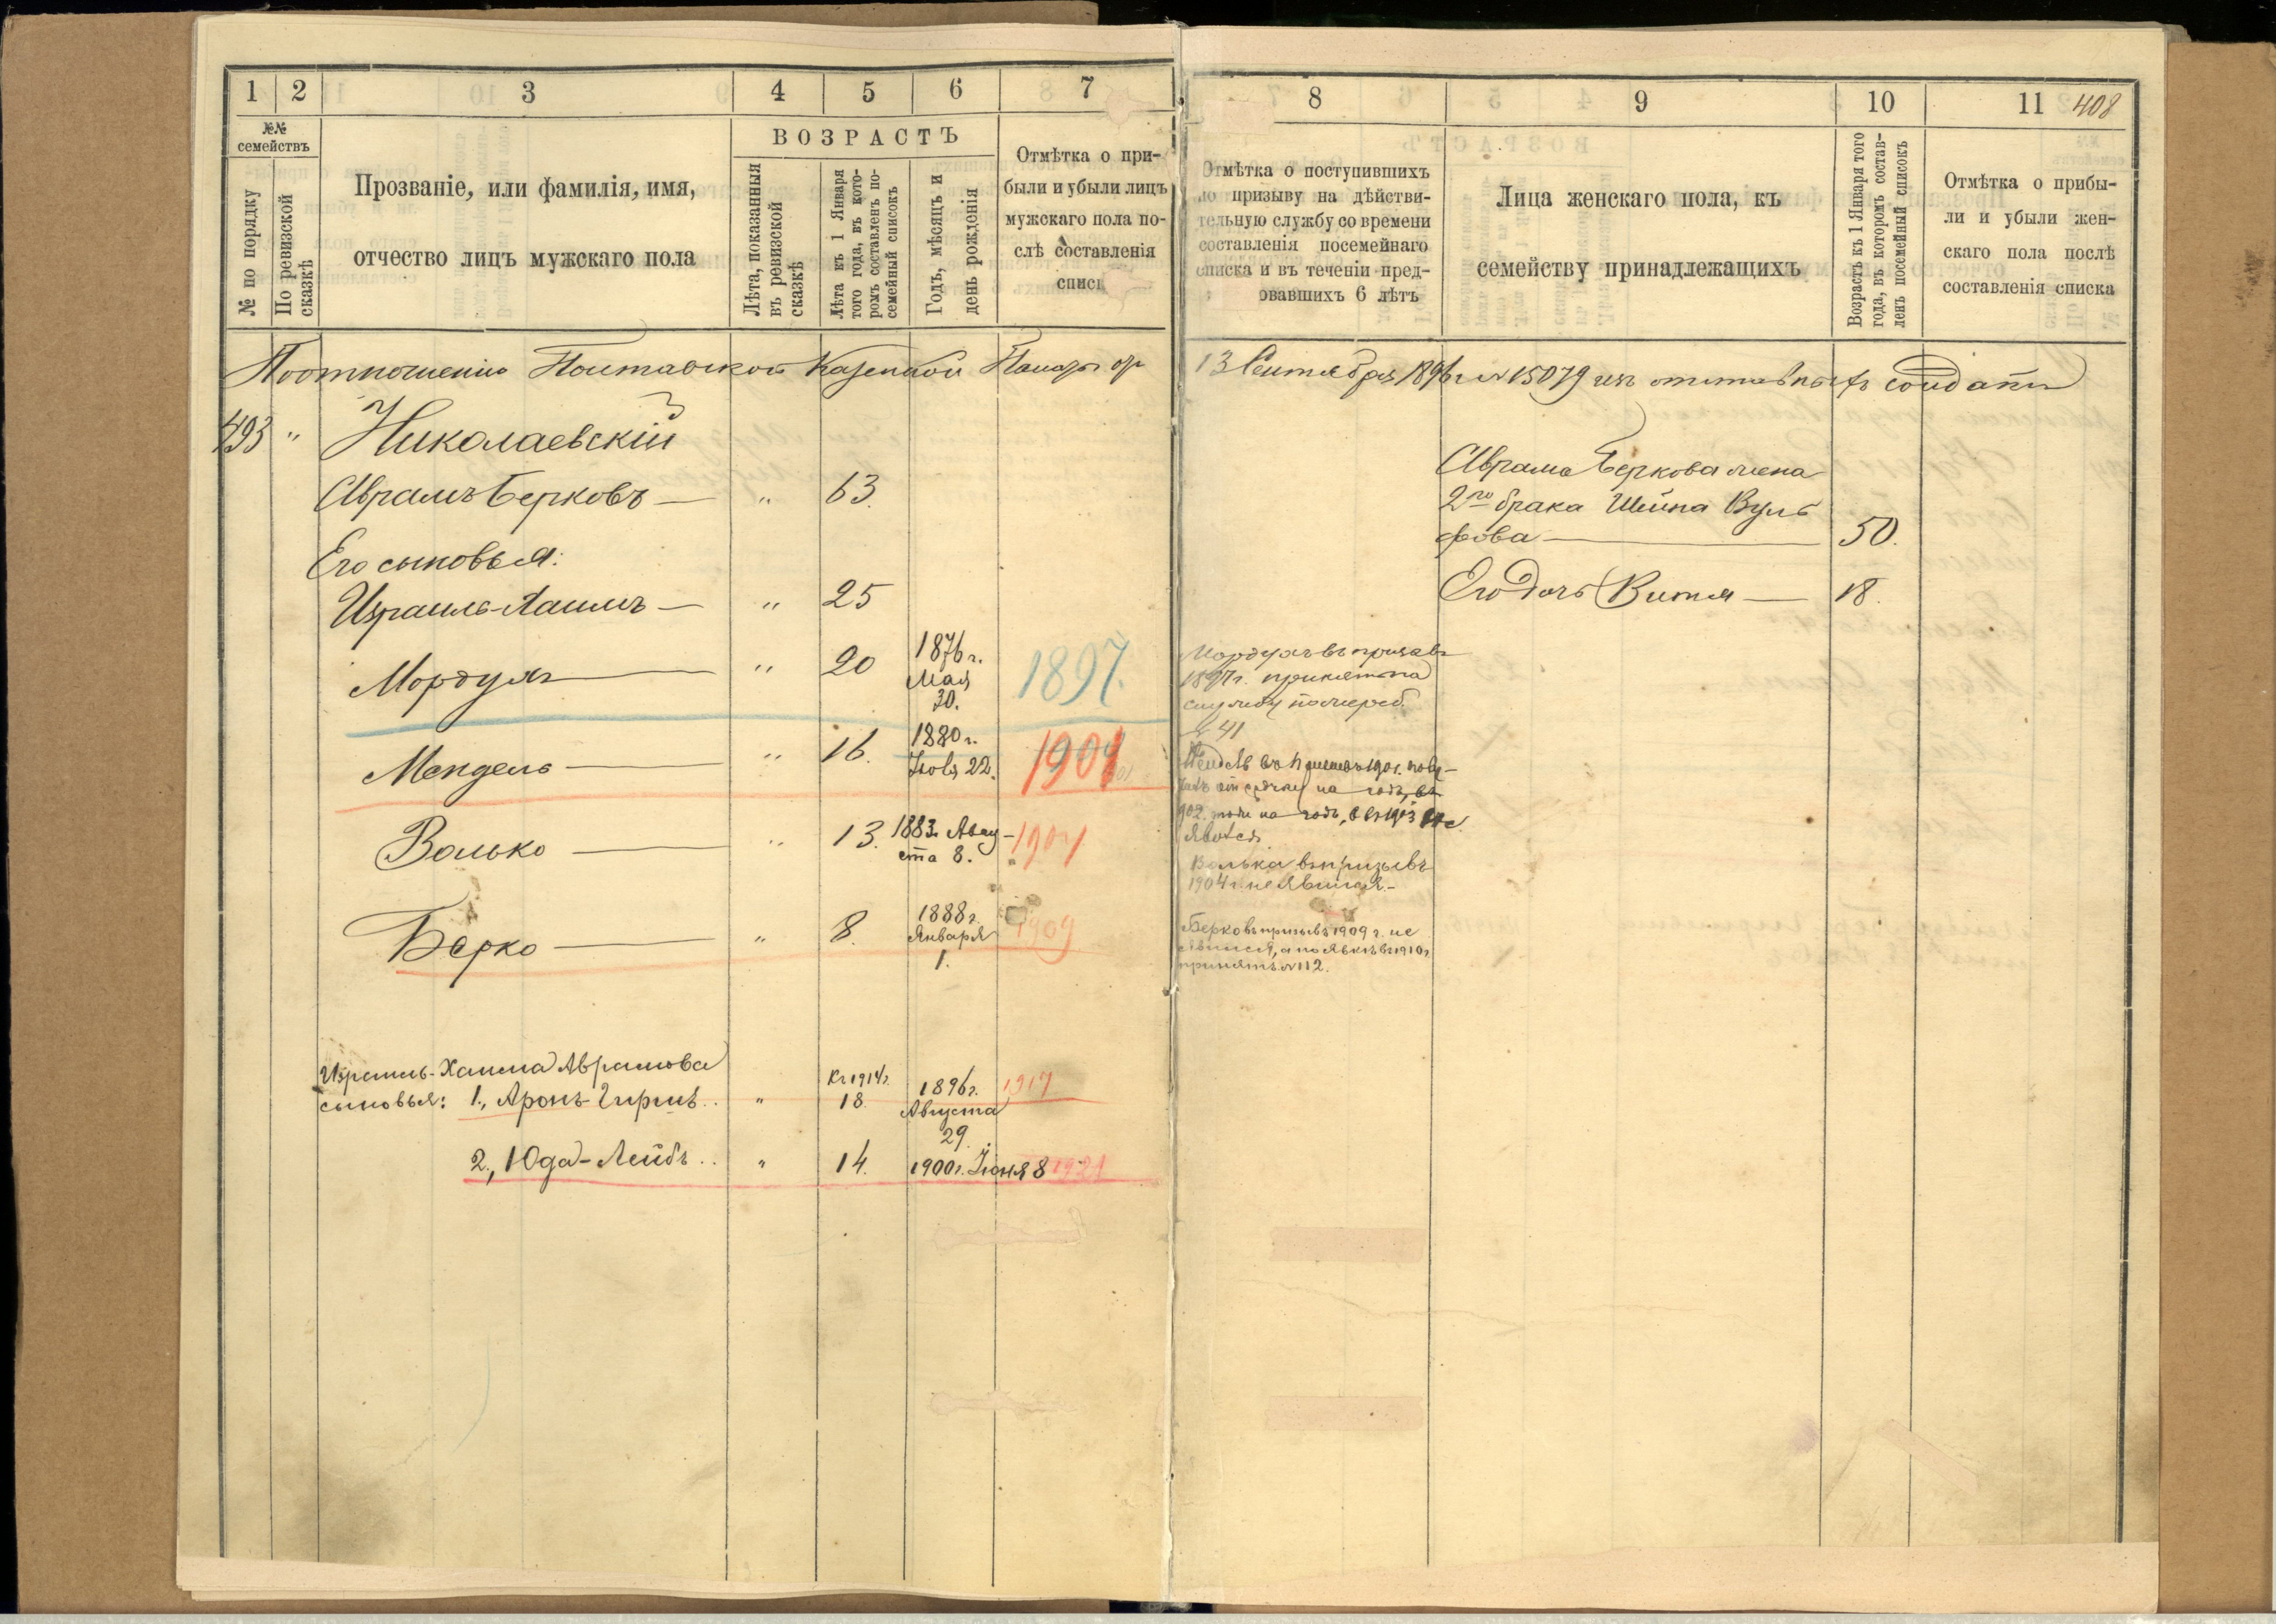 1 2 3 4 5 6 7
№№ семействъ
№ по порядку
По ревизской сказкѣ
Прозваніе, или фамилія, имя,
отчество лицъ мужскаго пола
ВОЗРАСТЪ
Лѣта, показанныя
въ ревизской
сказкѣ
Лѣта къ 1 Января
того года, въ кото-
ромъ составленъ по-
семейный списокъ
Годъ, мѣсяцъ и
день рожденія
Отмѣтка о при-
были и убыли лицъ
мужскаго пола по-
слѣ составленія
списк
По отношенію Полтавской Казенной Палаты от
493 " Николаевскій
Аврамъ Берковъ — " 63.
Его сыновья:
Израиль-Хаимъ — " 25
Мордухъ — " 20
1876 г.
Мая
30.
1897.
Мендель — " 16.
1880 г.
Іюля 22.
1901
Волько — " 13.
1883 г. Авгу-
ста 8.
1904
Берко — " 8.
1888 г.
Января
1.
1909
Израиль-Хаима Аврамова
сыновья: 1., Аронъ-Гиршъ.. "
Къ 1914 г.
18.
1896 г.
Августа
29.
1917
2., Юда-Лейбъ.. " 14. 1900 г. Іюня 8 1921
8 9 10 11 408
Отмѣтка о поступившихъ
по призыву на дѣйстви-
тельную службу со времени
составленія посемейнаго
списка и въ теченіи пред-
овавшихъ 6 лѣтъ
Лица женскаго пола, къ
семейству принадлежащихъ
Возрастъ къ 1 Января того
года, въ которомъ состав-
ленъ посемейный списокъ
Отмѣтка о прибы-
ли и убыли жен-
скаго пола послѣ
составленія списка
13 Сентября 1896 г. № 15079 изъ отставныхъ солдатъ
Аврама Беркова жена
2го брака Шейна Вуль
фова — 50.
Его дочь Витя — 18.
Мордухъ въ призывъ
1897 г. принятъ на
службу по жереб.
№ 41
Мендель въ призывъ 1901 г. полу-
чилъ отсрочку на годъ, въ
902. тоже на годъ, въ 1903 не
явился
Волька въ призывъ
1904 г. не явился.-
Берко въ призывъ 1909 г. не
явился, а по явкѣ въ 1910 г
принятъ № 112.